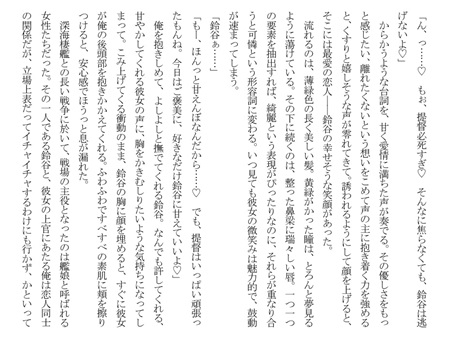 「ん、っ……♡　もぉ、提督必死すぎ♡　そんなに焦らなくても、鈴谷は逃
げないよ♡」
　からかうような台詞を、甘く愛情に満ちた声が奏でる。その優しさをもっ
と感じたい、離れたくないという想いをこめて声の主に抱き着く力を強める
と、くすりと嬉しそうな声が零れてきて。誘われるようにして顔を上げると、
そこには最愛の恋人――鈴谷の幸せそうな笑顔があった。
　流れるのは、薄緑色の長く美しい髪。黄緑がかった瞳は、とろんと夢見る
ように蕩けている。その下に続くのは、整った鼻梁に瑞々しい唇。一つ一つ
の要素を抽出すれば、綺麗という表現がぴったりなのに、それらが重なり合
うと可憐という形容詞に変わる。いつ見ても彼女の微笑みは魅力的で、鼓動
が速まってしまう。
「鈴谷ぁ……」
「もー、ほんっと甘えんぼなんだから……♡　でも、提督はいっぱい頑張っ
たもんね。今日はご褒美に、好きなだけ鈴谷に甘えていいよ♡」
　俺を抱きしめて、よしよしと撫でてくれる鈴谷。なんでも許してくれる、
甘やかしてくれる彼女の声に、胸をかきむしりたいような気持ちになってし
まって。こみ上げてくる衝動のまま、鈴谷の胸に顔を埋めると、すぐに彼女
が俺の後頭部を抱きかかえてくる。ふわふわですべすべの素肌に頬を擦り
つけると、安心感でほうっと息が漏れた。
　深海棲艦との長い戦争に於いて、戦場の主役となったのは艦娘と呼ばれる
女性たちだった。その一人である鈴谷と、彼女の上官にあたる俺は恋人同士
の関係だが、立場上表だってイチャイチャするわけにも行かず。かといって